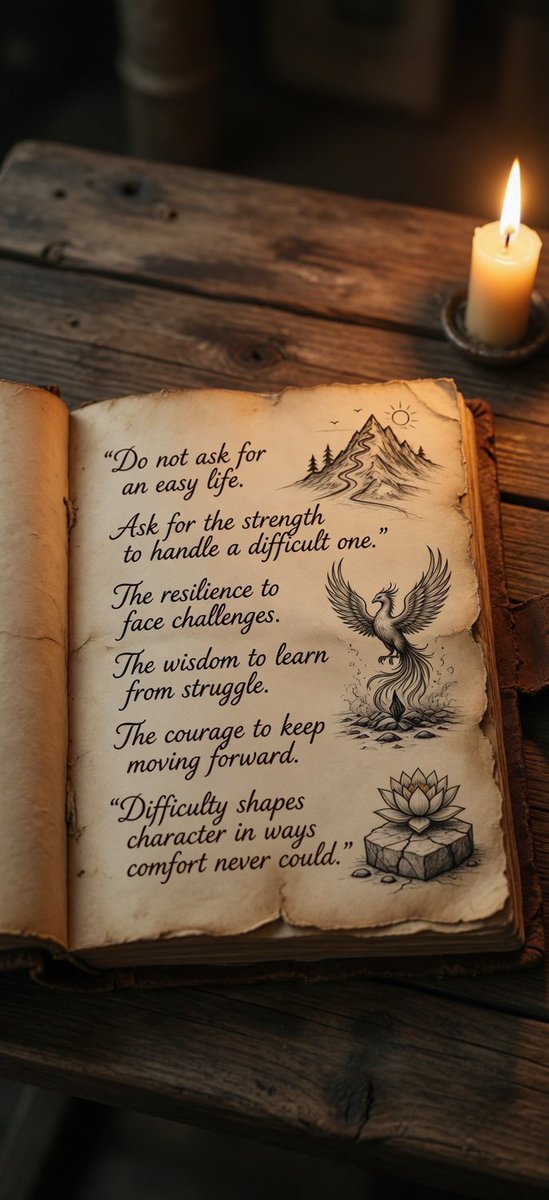 “Do not ask for
an easy life.
Ask for the strength
to handle a difficult one.”
The resilience to
face challenges.
The wisdom to learn
from struggle.
The courage to keep
moving forward.
“Difficulty shapes
character in ways
comfort never could.”